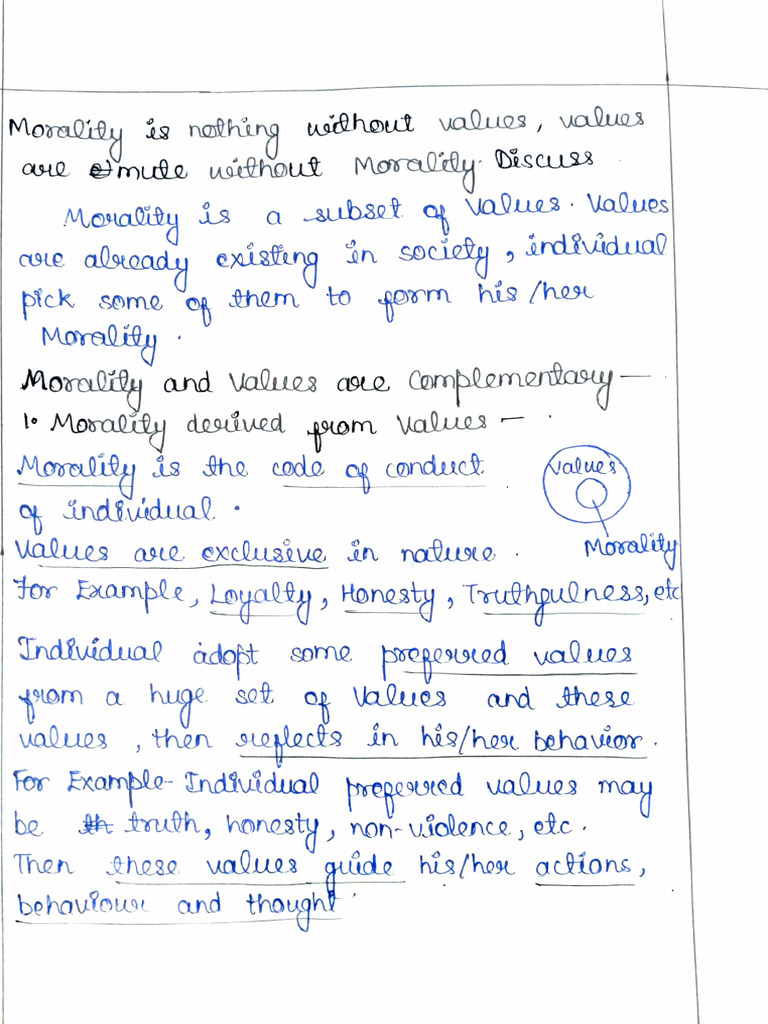 Morality is nothing without values, values
are mute without Morality. Discuss
Morality is a subset of values. Values
are already existing in society, individual
pick some of them to form his/her
Morality.
Morality and values are complementary —
1. Morality derived from values —
Morality is the code of conduct
of individual.
values
Morality
Values are exclusive in nature.
For Example, Loyalty, Honesty, Truthfulness, etc
Individual adopt some preferred values
from a huge set of values and these
values, then reflects in his/her behavior.
For Example- Individual preferred values may
be truth, honesty, non-violence, etc.
Then these values guide his/her actions,
behaviour and thought.